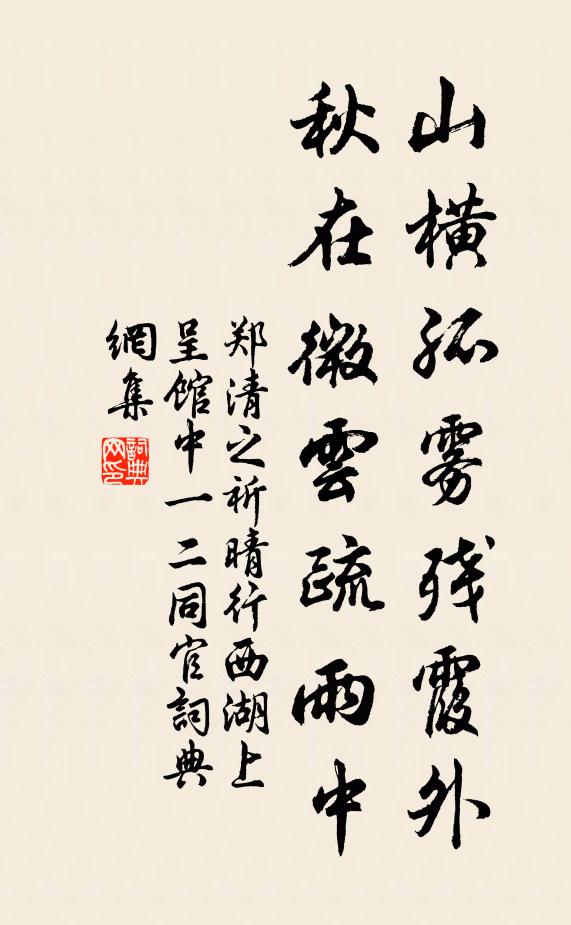 山橫孤雾残霞外
秋在微雲疏雨中
郑清之祈晴行西湖上
呈馆中一二同官詞典
網集
詞典
网印